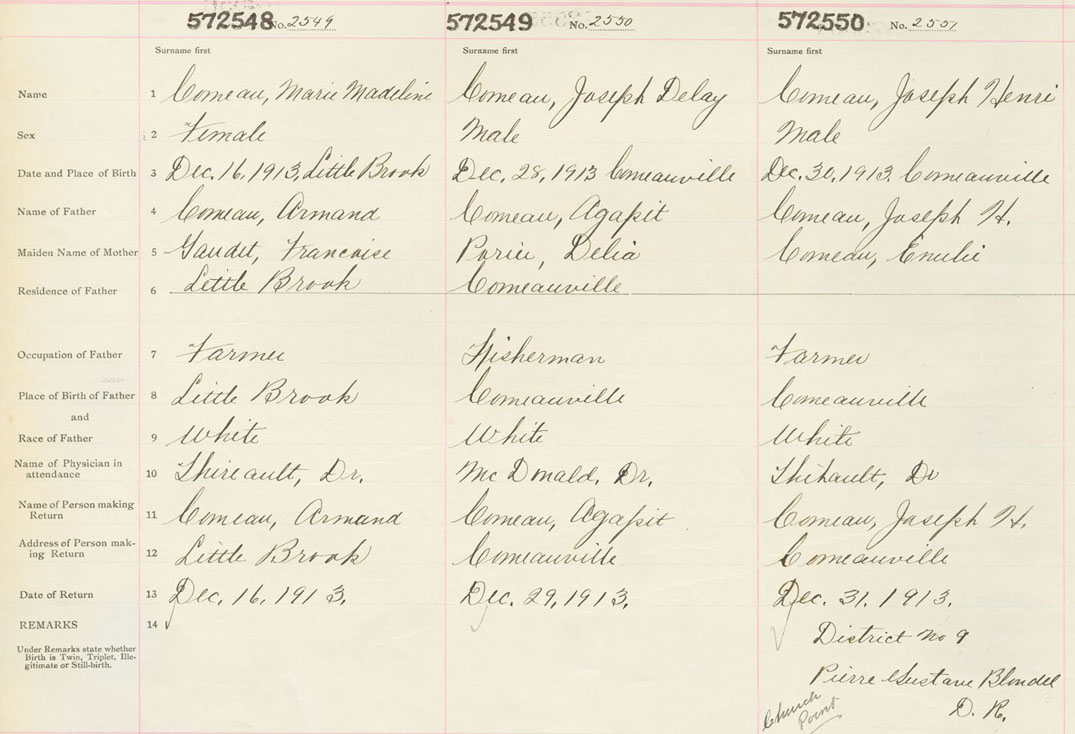 572548 No. 2549 572549 No. 2550 572550 No. 2551
Surname first Surname first Surname first
Name 1 Comeau, Marie Madeline Comeau, Joseph Delay Comeau, Joseph Henri
Sex 2 Female Male Male
Date and Place of Birth 3 Dec. 16, 1913, Little Brook Dec. 28, 1913 Comeauville Dec. 30, 1913. Comeauville
Name of Father 4 Comeau, Armand Comeau, Agapit Comeau, Joseph H.
Maiden Name of Mother 5 Gaudet, Francoise Delia Comeau,
Residence of Father 6 Little Brook Comeauville
Occupation of Father 7 Farmer Fisherman Farmer
Place of Birth of Father 8 Little Brook Comeauville Comeauville
and
Race of Father 9 White White White
Name of Physician in
attendance 10 Dr. Mc Donald, Dr. Dr
Name of Person making
Return 11 Comeau, Armand Comeau, Agapit Comeau, Joseph H.
Address of Person mak-
ing Return 12 Little Brook Comeauville Comeauville
Date of Return 13 Dec. 16, 1913. Dec. 29, 1913. Dec. 31. 1913.
REMARKS 14 District No 9
Under Remarks state whether
Birth is Twin, Triplet, Ille-
gitimate or Still-birth.
Pierre Gustave Blondel
Church
Point D. R.